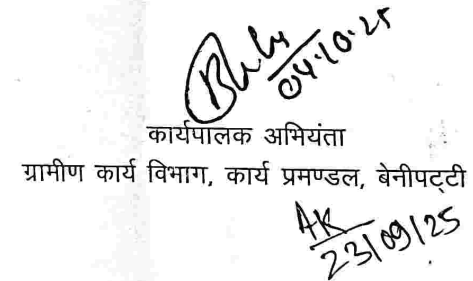 04.10.25
कार्यपालक अभियंता
ग्रामीण कार्य विभाग, कार्य प्रमण्डल, बेनीपट्टी
AK
23/09/25